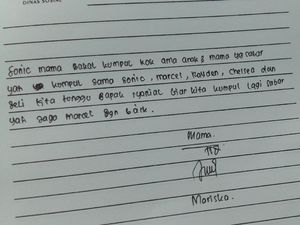 DINAS SOSIAL
Sonic mama bakal kumpul kok ama anak2 mama yg sabar
yah kumpul sama sonic, marcel, Kaylden, Chelsea dan
beli kita tunggu bapak nyantai biar kita kumpul lagi sabar
yah jaga marcel dgn baik.
Mama.
Mariska.